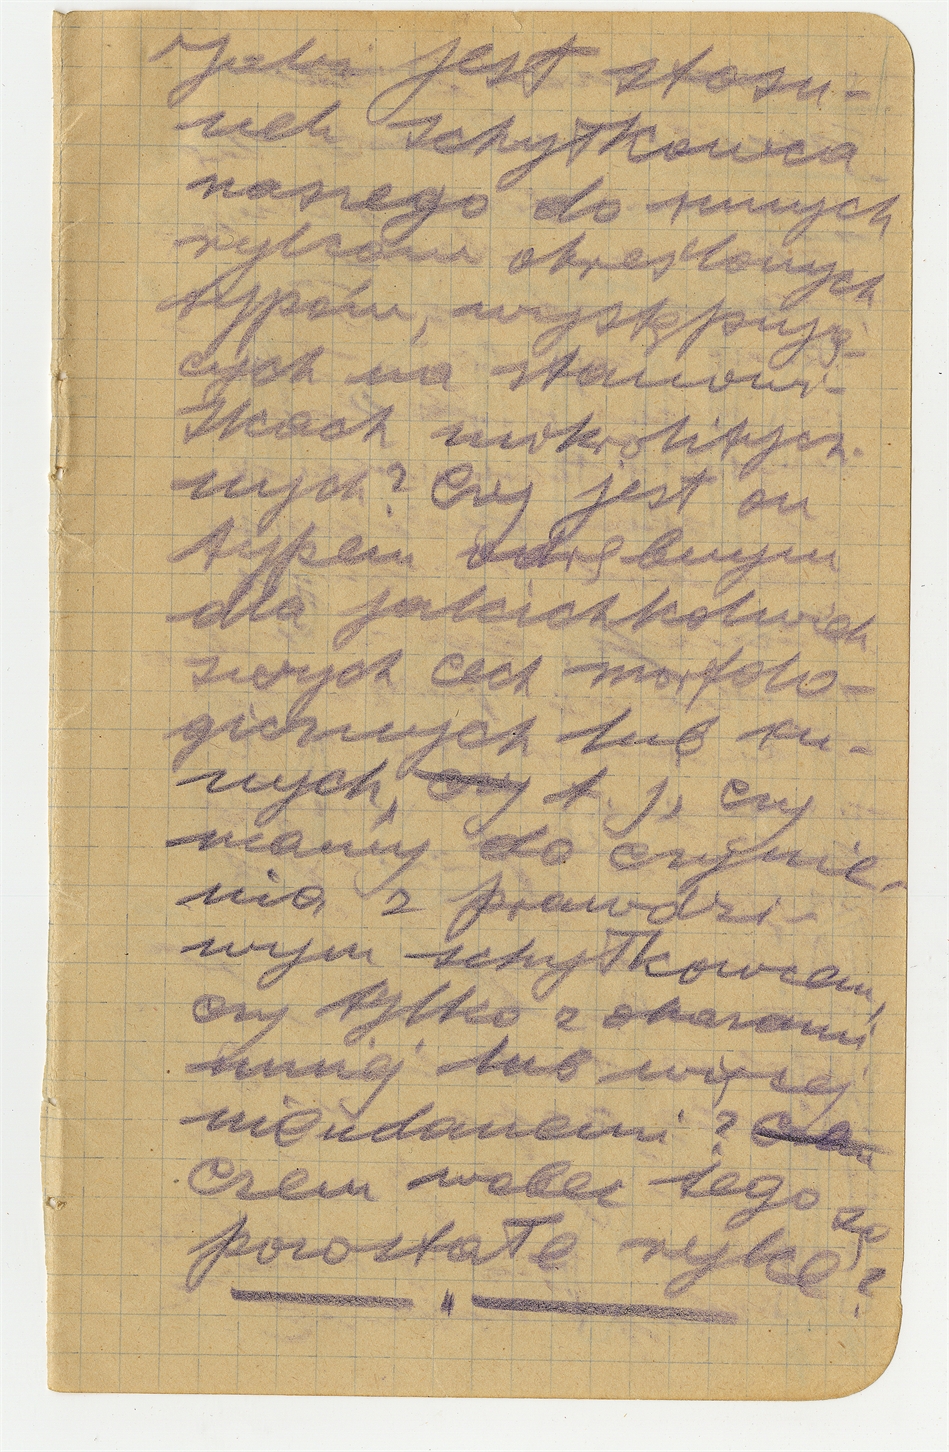 Jaki jest stosu-
nek schyłkowca
naszego do innych
rylców określonych
typów, występują-
cych na stanowi-
skach mikrolitycz-
nych? Czy jest on
typem odrębnym
dla jakichkolwiek
swych cech morfolo-
gicznych lub in-
nych, czy t. j. czy
mamy do czynie-
nia z prawdzi-
wym schyłkowcem,
czy tylko z okazami
mniej lub więcej
nieudanemi?
Czem wobec tego są
pozostałe rylce?